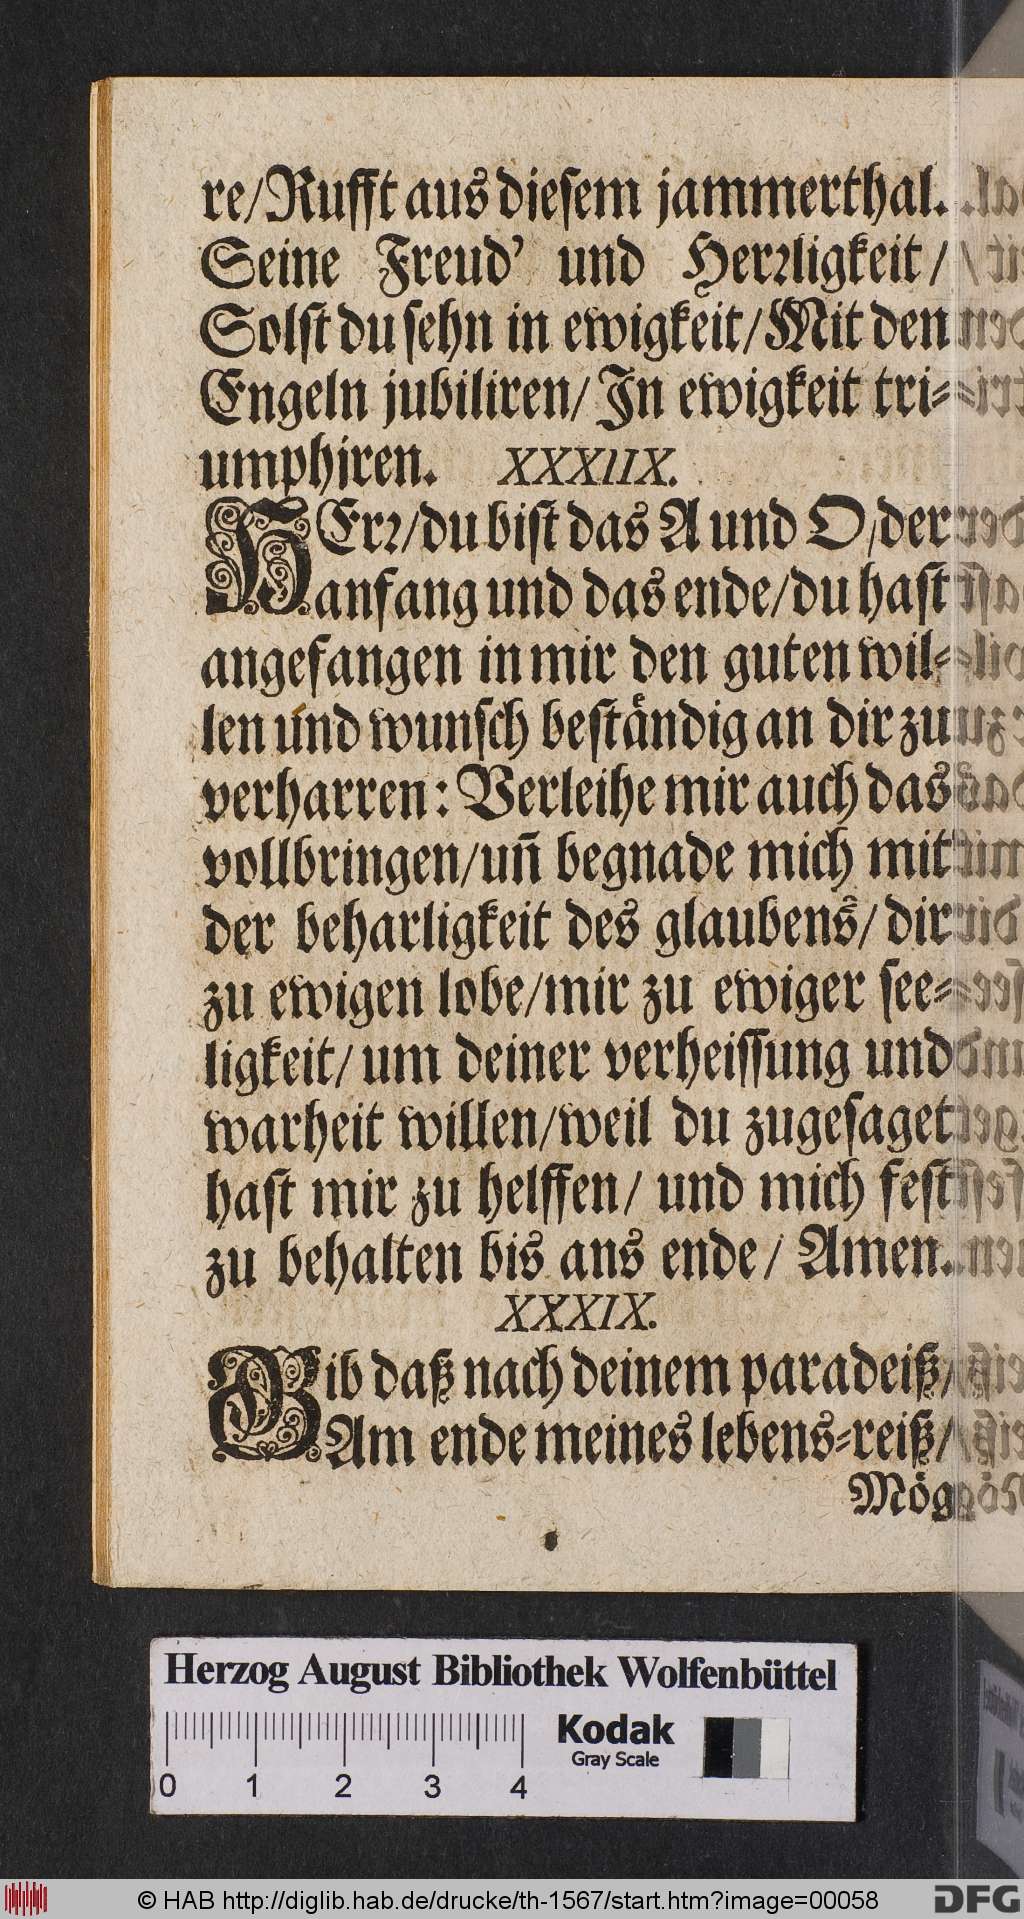 re/Rufft aus diesem jammerthal.
Seine Freud' und Herꝛligkeit/
Solst du sehn in ewigkeit/Mit den
Engeln jubiliren/ In ewigkeit tri-
umphiren. XXXIIX.
HErꝛ/du bist das A und O/der
anfang und das ende/du hast
angefangen in mir den guten wil-
len und wunsch beständig an dir zu
verharren: Verleihe mir auch das
vollbringen/uñ begnade mich mit
der beharligkeit des glaubens/ dir
zu ewigen lobe/mir zu ewiger see-
ligkeit/ um deiner verheissung und
warheit willen/weil du zugesaget
hast mir zu helffen/ und mich fest
zu behalten bis ans ende/ Amen.
XXXIX.
Gib daß nach deinem paradeiß/
Am ende meines lebens-reiß/
Mög
Herzog August Bibliothek Wolfenbüttel
Kodak
Gray Scale
0 1 2 3 4
© HAB http://diglib.hab.de/drucke/th-1567/start.htm?image=00058
DFG